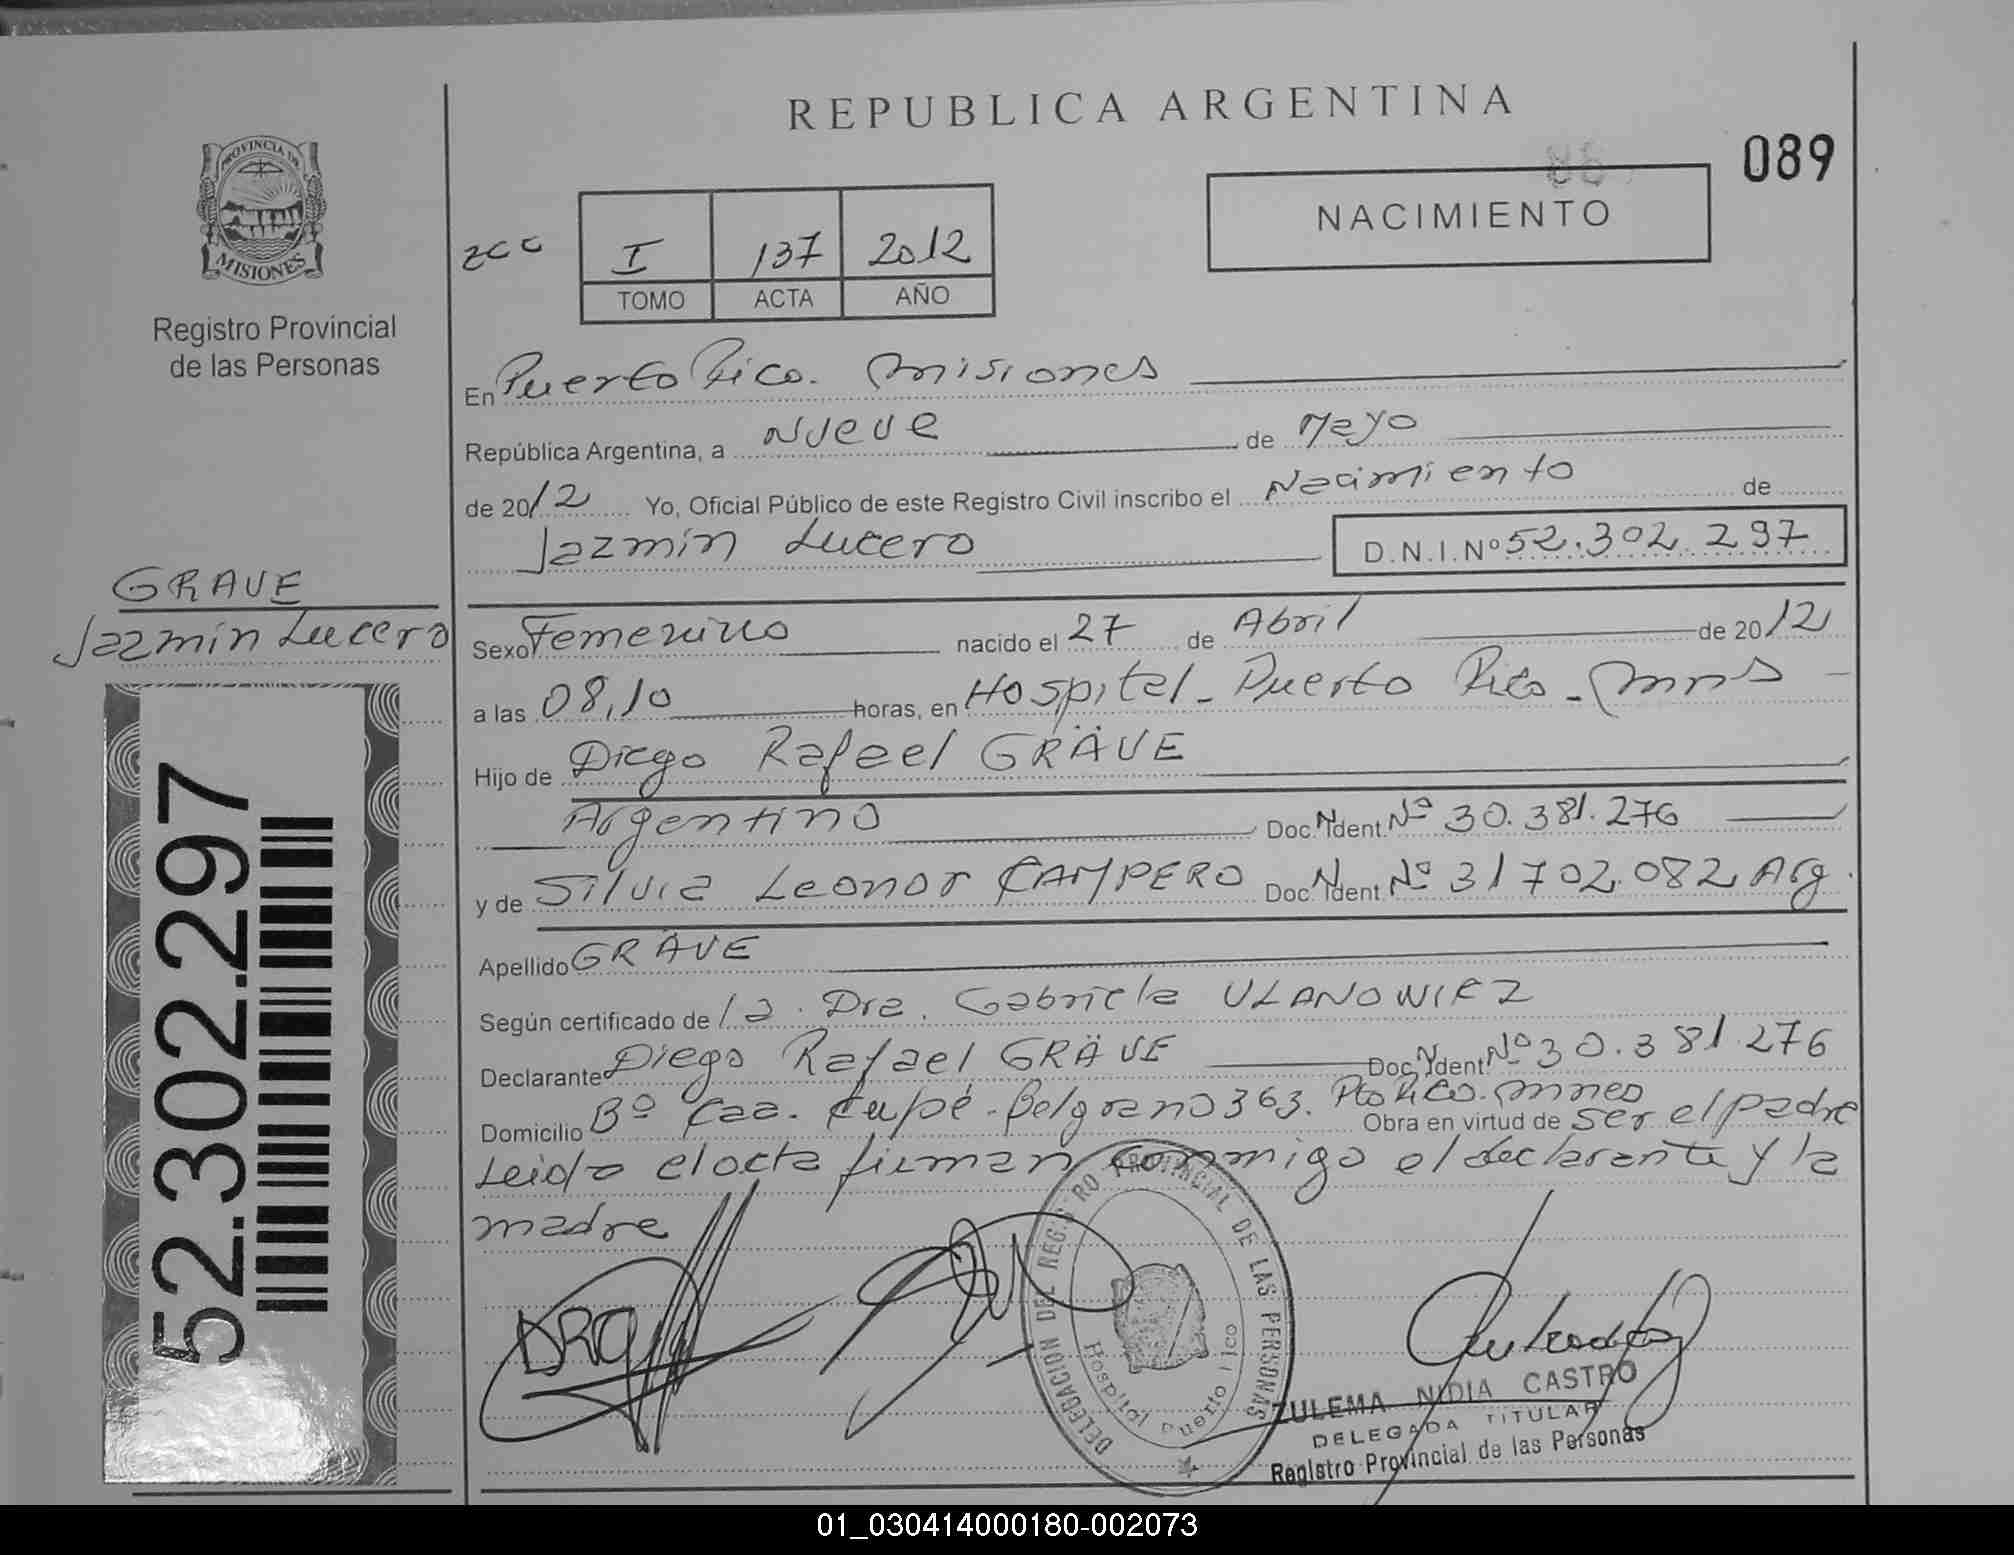 REPUBLICA ARGENTINA
089
PROVINCIA DE
MISIONES
Registro Provincial
de las Personas
NACIMIENTO
I 137 2012
TOMO ACTA AÑO
En Puerto Rico. Misiones
República Argentina, a Nueve de Mayo
de 2012 Yo, Oficial Público de este Registro Civil inscribo el Nacimiento de
Jazmin Lucero D.N.I.Nº 52.302.297
GRAVE
Jazmin Lucero
Sexo Femenino nacido el 27 de Abril de 2012
a las 08,10 horas, en Hospital - Puerto Rico - Mnes
Hijo de Diego Rafael GRÄVE
Argentino Doc. Ident. Nº 30.381.276
y de Silvia Leonor CAMPERO Doc. Ident. Nº 31702.082 Arg.
Apellido GRÄVE
Según certificado de la Dra. Gabriela ULANOWIEZ
Declarante Diego Rafael GRÄVE Doc. Ident. Nº 30.381.276
Domicilio Bº Caa. Cupé - Belgrano 363. Pto Rico. Mnes Obra en virtud de ser el padre
Leida el acta firman conmigo el declarante y la
madre
52.302.297
DRG
DELEGACION DEL REGISTRO PROVINCIAL DE LAS PERSONAS
Hospital Puerto Rico
ZULEMA NIDIA CASTRO
DELEGADA TITULAR
Registro Provincial de las Personas
01_030414000180-002073